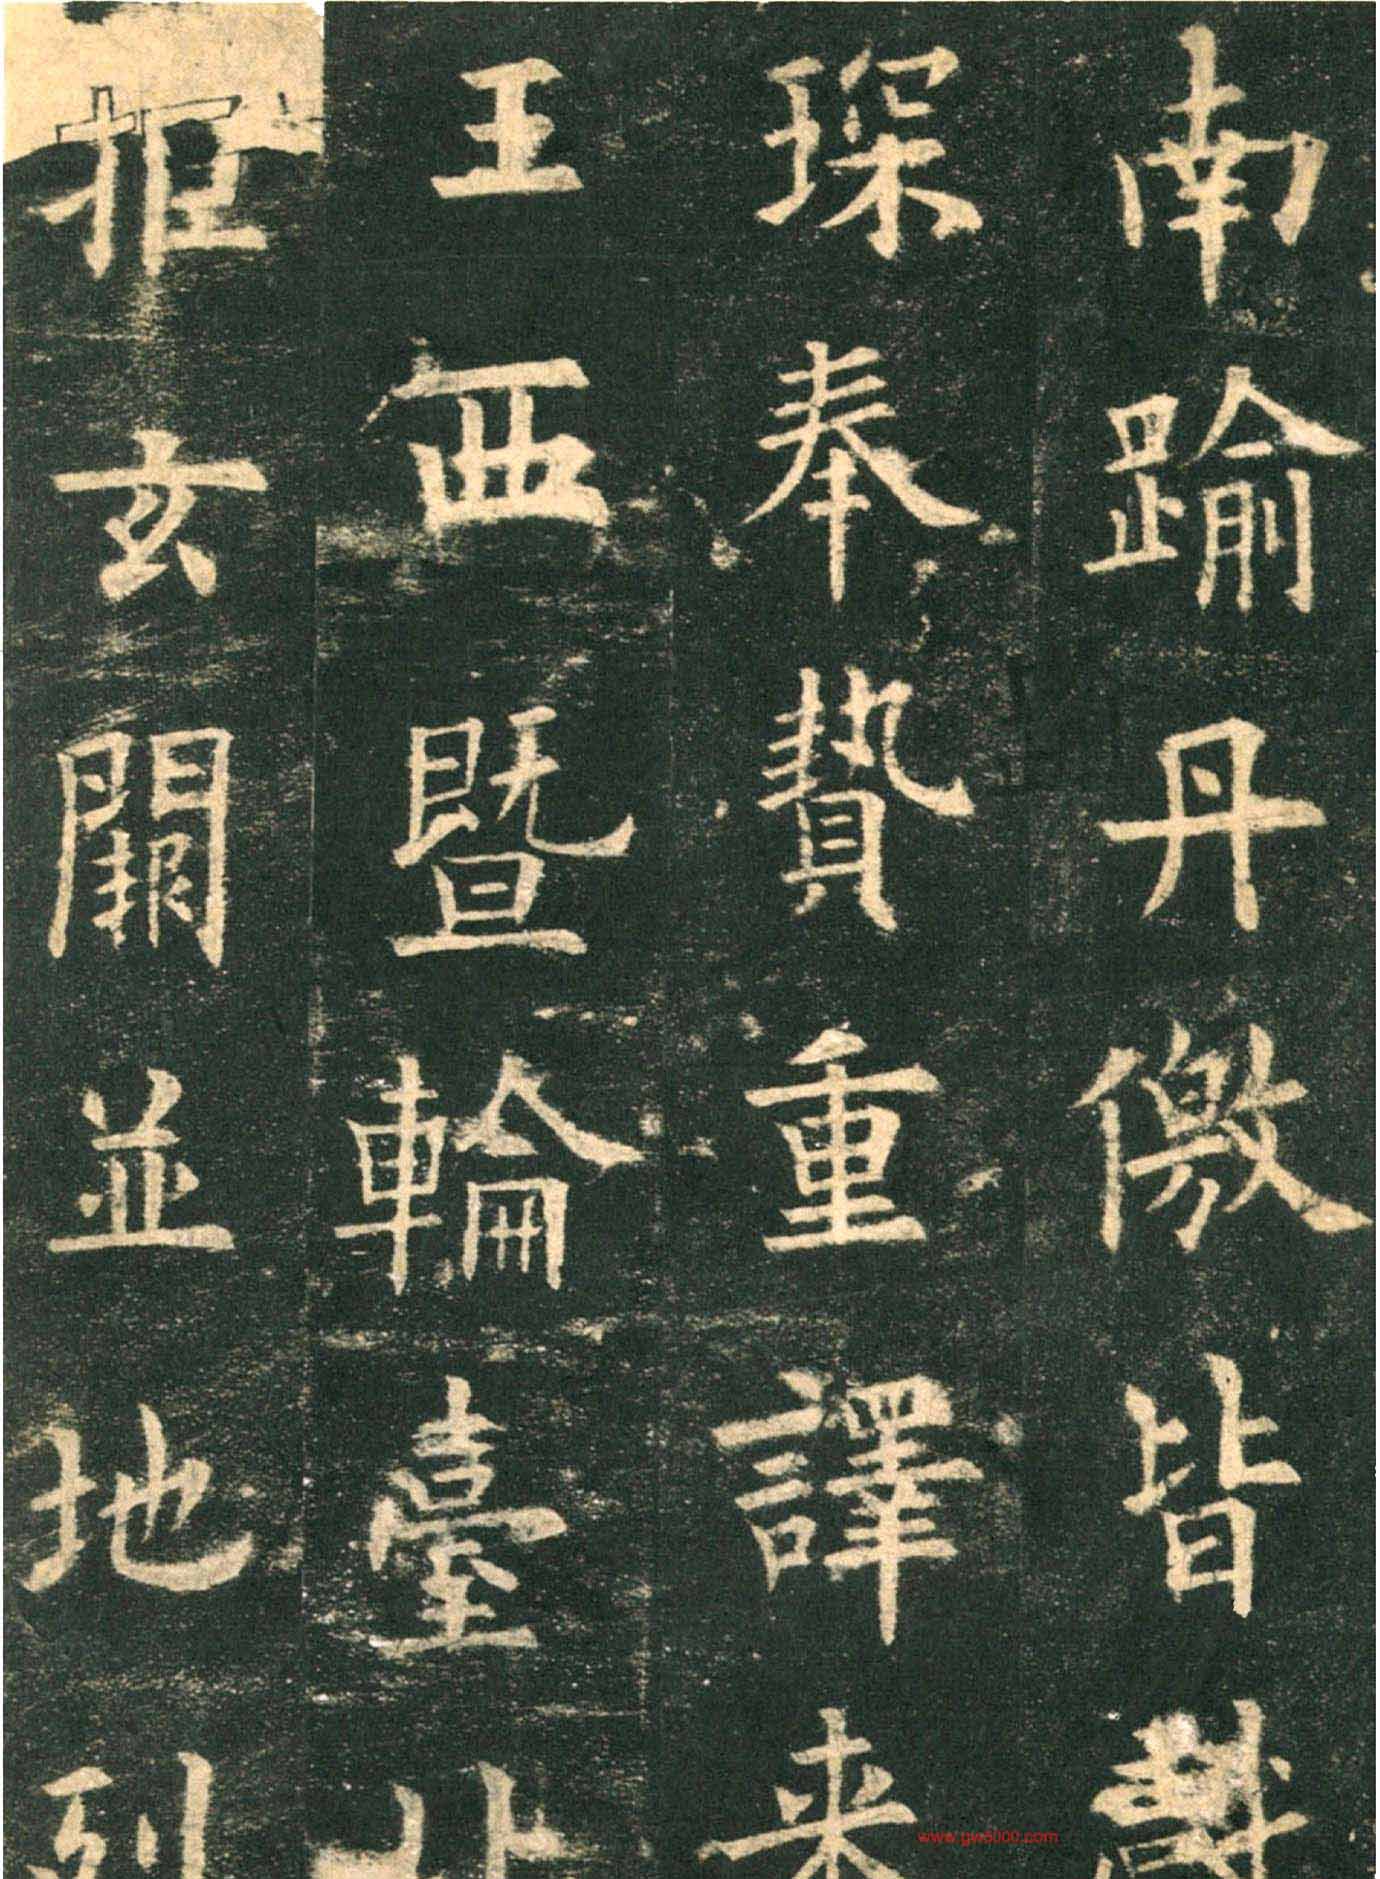 南踰丹儌皆獻
琛奉贄重譯来
王西暨輪臺北
拒玄闕並地列
www.gw5000.com